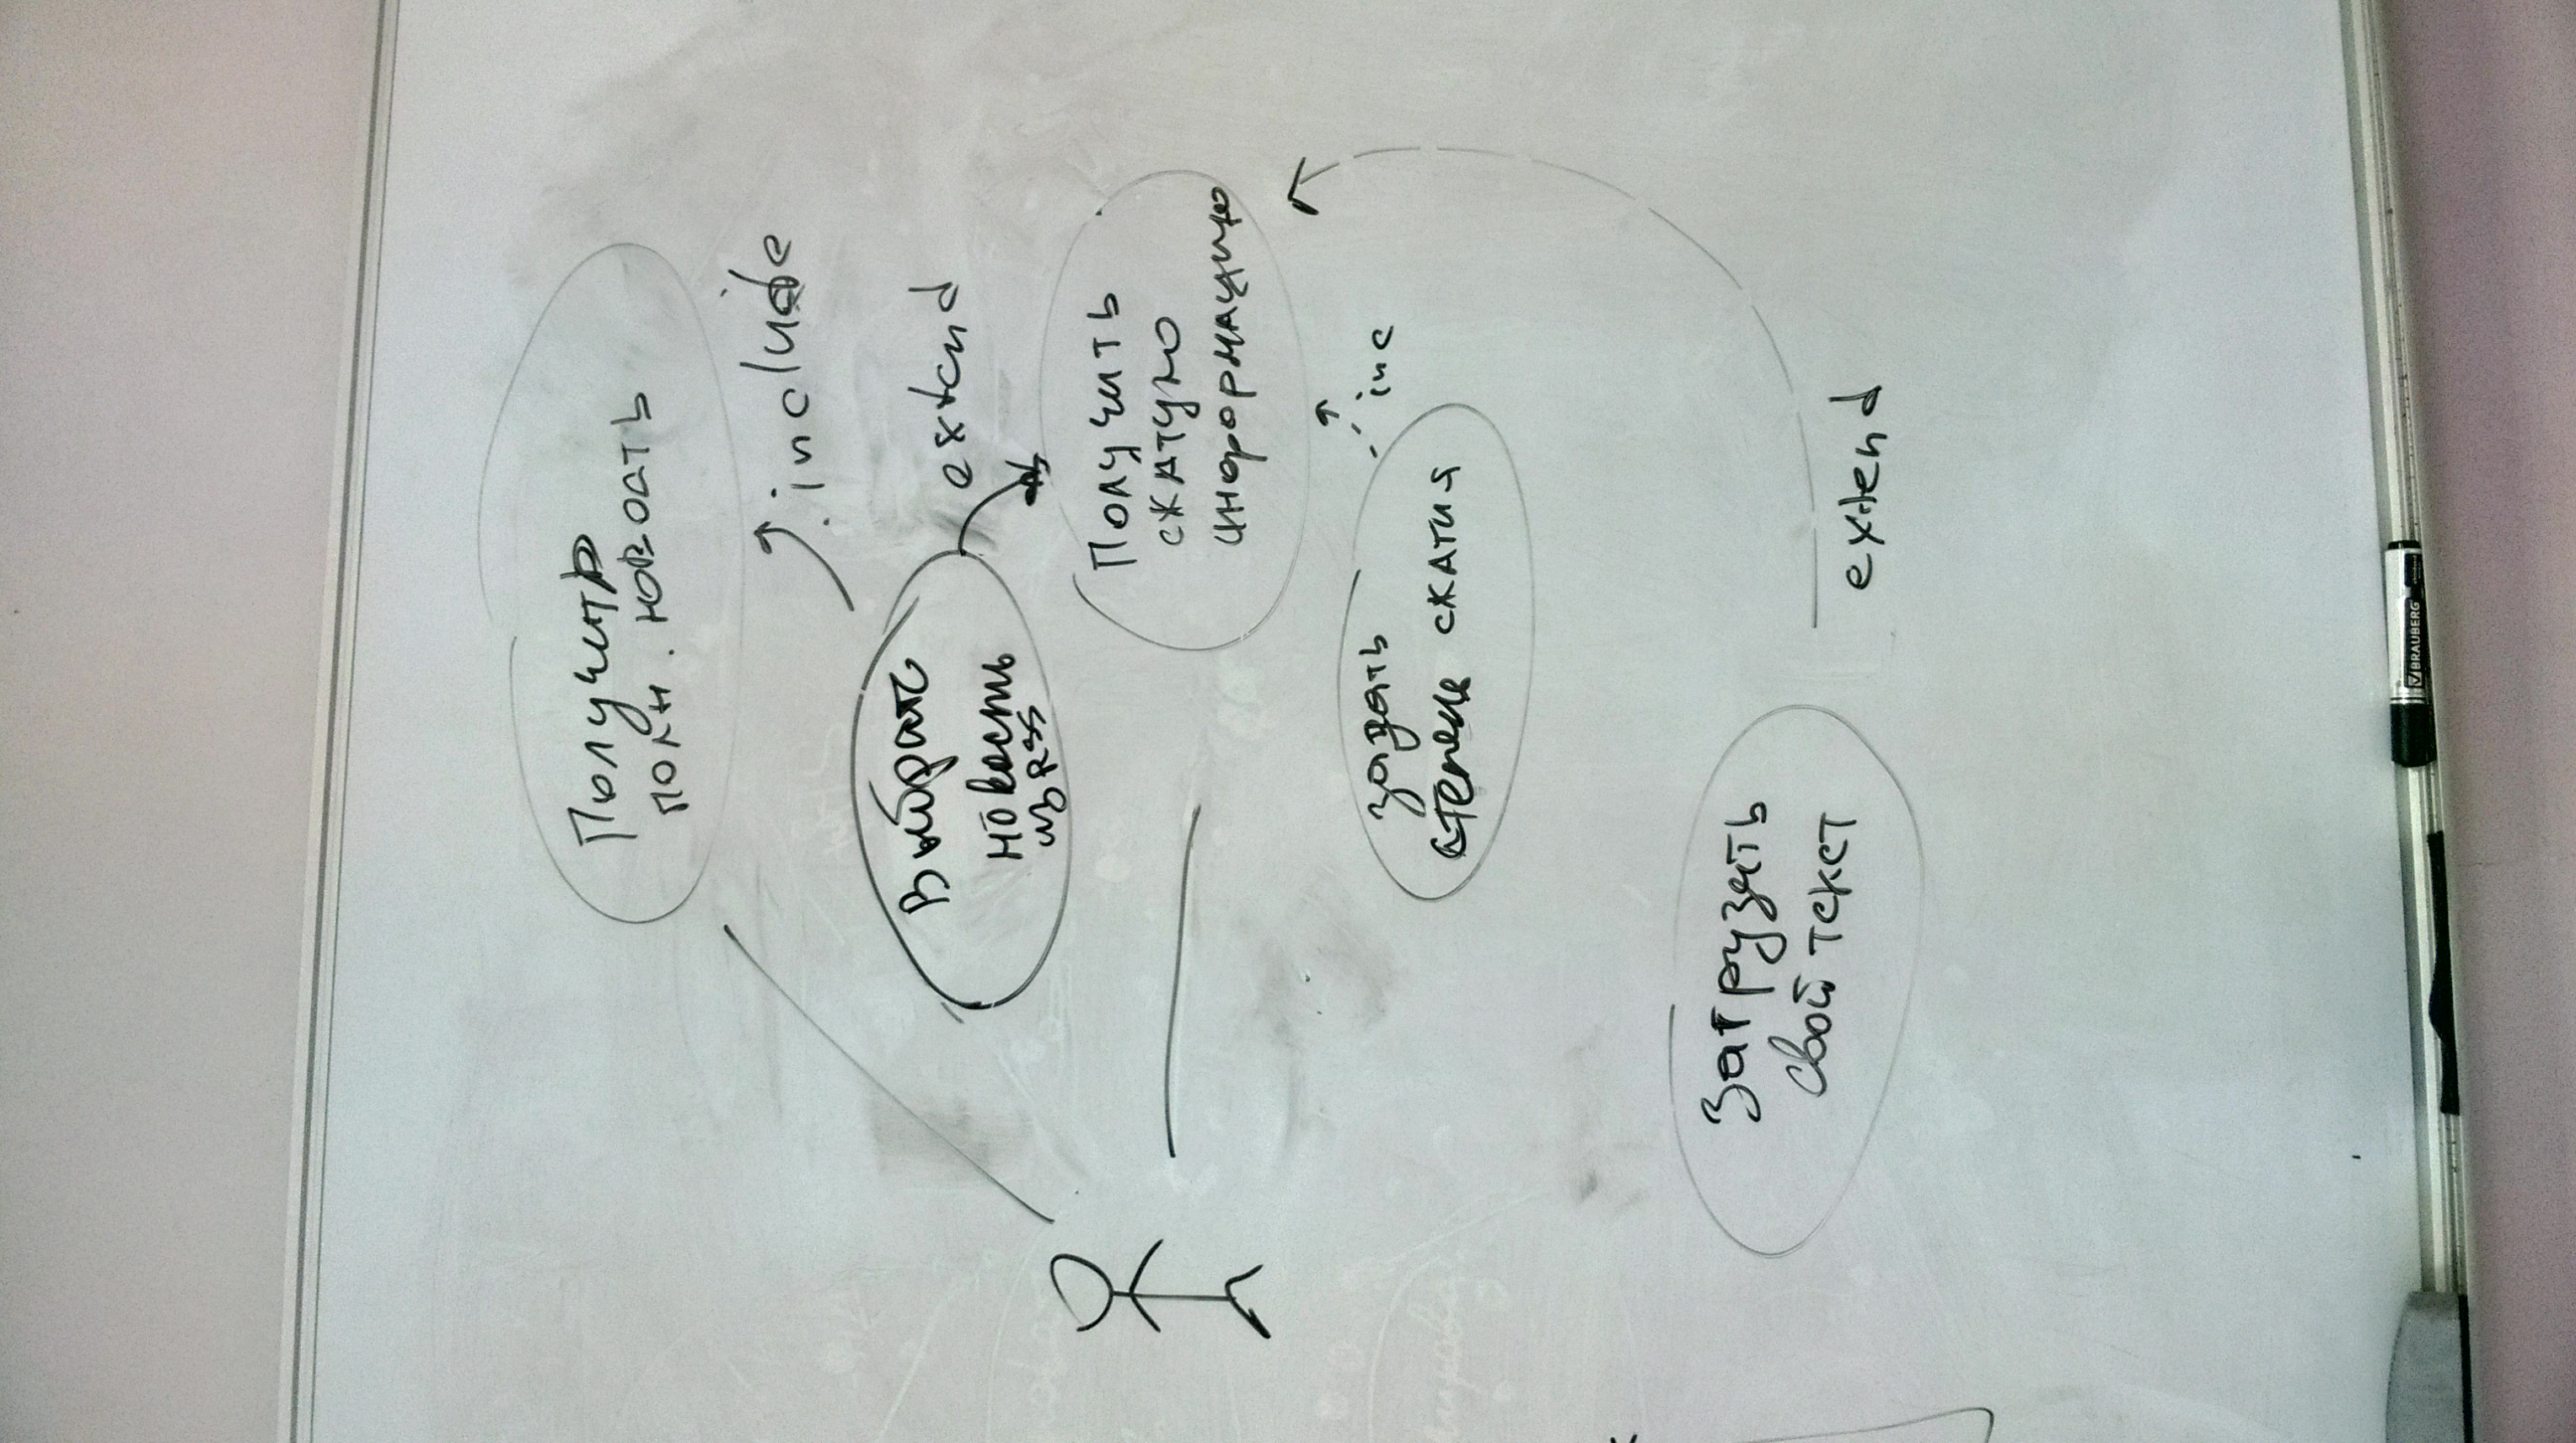 Получить
полн. новость
include
Выбрать
новость
из RSS
extend
Получить
сжатую
информацию
inc
задать
степень сжатия
Загрузить
свой текст
extend
BRAUBERG